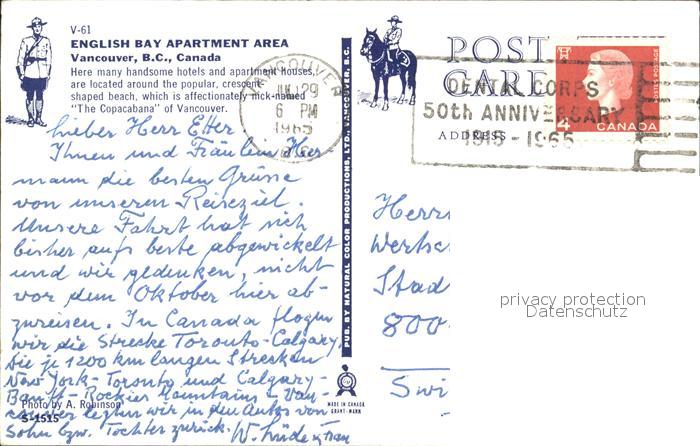 V-61
ENGLISH BAY APARTMENT AREA
Vancouver, B.C., Canada
Here many handsome hotels and apartment houses,
are located around the popular, crescent
shaped beach, which is affectionately nick-named
"The Copacabana" of Vancouver.
Lieber Herr Etter
Ihnen und Fräulein Herr-
mann die besten Grüsse
von unserem Reiseziel.
Unsere Fahrt hat sich
bisher aufs beste abgewickelt
und wir gedenken, nicht
vor dem Oktober hier ab-
zureisen. In Canada flogen
wir die Strecke Toronto-Calgary,
die je 1200 km langen Strecken
New York-Toronto und Calgary-
Banff-Rockier Mountains-Van-
couver legten wir in den Autos von
Sohn bzw. Tochter zurück.
Photo by A. Robinson
S-1515
PUB. BY NATURAL COLOR PRODUCTIONS, LTD., VANCOUVER, B.C.
MADE IN CANADA
GRANT-MANN
POST
CARD
ADDRESS
VANCOUVER
29
6 PM
1965
DENTAL CORPS
50th ANNIVERSARY
1915-1965
4
CANADA
POSTES POSTAGE
Herrn
Stad
800
Swi
privacy protection
Datenschutz